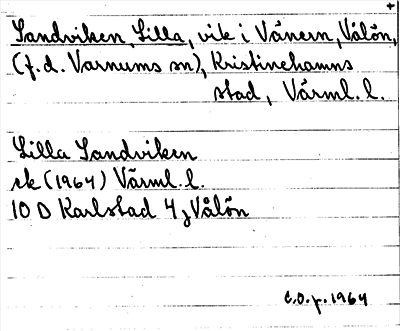 Sandviken, Lilla, vik i Vänern, Vålön,
(f.d. Varnums sn), Kristinehamns
stad, Värml. l.
Lilla Sandviken
ek (1964) Värml. l.
10 D Karlstad 4 j Vålön
C.O.p. 1964